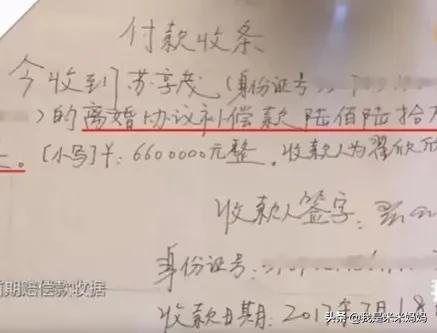 付款收条
今收到苏享茂(身份证号
)的离婚协议补偿款陆佰陆拾
。[小写]¥:6600000元整.收款人为翟欣欣
收款人签字:
身份证号:
收款日期:2017年7月18
前期赔偿款收据
头条@我是米米妈妈